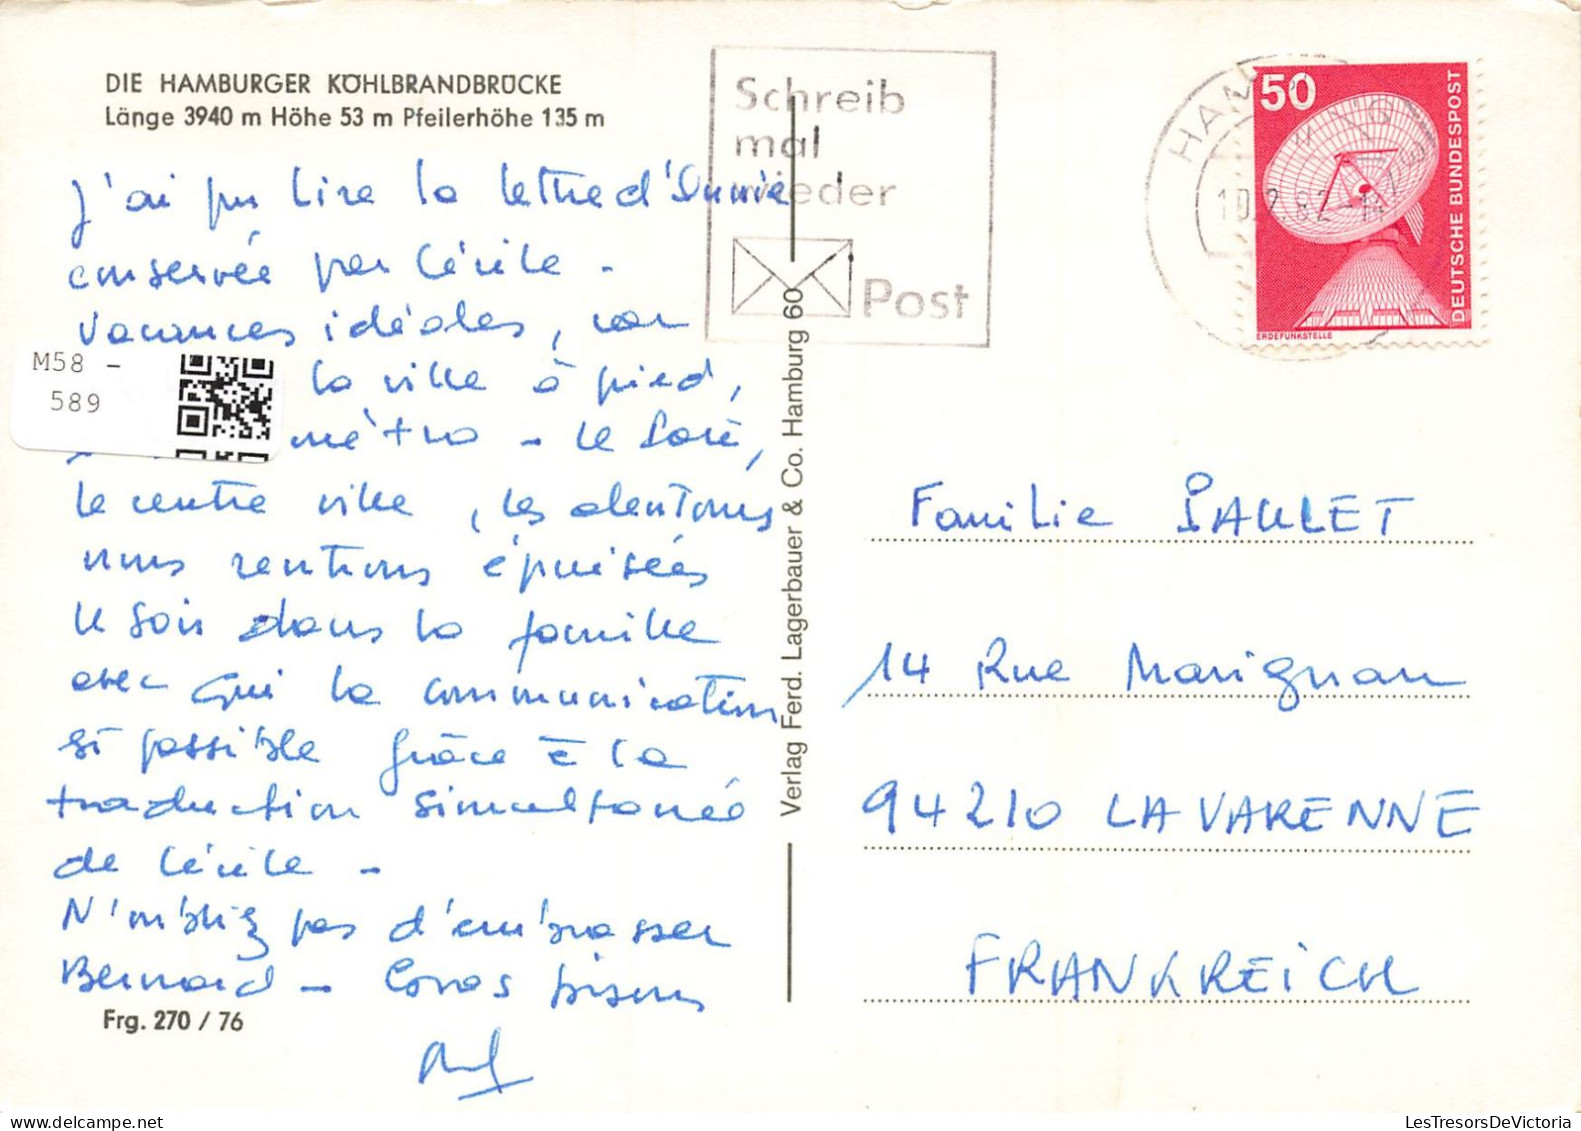 DIE HAMBURGER KÖHLBRANDBRÜCKE
Länge 3940 m Höhe 53 m Pfeilerhöhe 135 m
J'ai pu lire la lettre d'Annie
conservée par Cécile -
Vacances idéales, car
la ville à pied,
métro - le soir,
le centre ville, les alentours
nous rentrions épuisées
le soir dans la famille
avec qui la communication
est possible grâce à la
traduction simultanée
de Cécile -
N'oubliez pas d'embrasser
Bernard - Gros bisous
Frg. 270 / 76
M58 -
589
Verlag Ferd. Lagerbauer & Co. Hamburg 60
Schreib
mal
wieder
Post
HAMBURG
10.2.82-14
50
DEUTSCHE BUNDESPOST
ERDEFUNKSTELLE
Familie PAULET
14 Rue Marignan
94210 LA VARENNE
FRANKREICH
LesTresorsDeVictoria